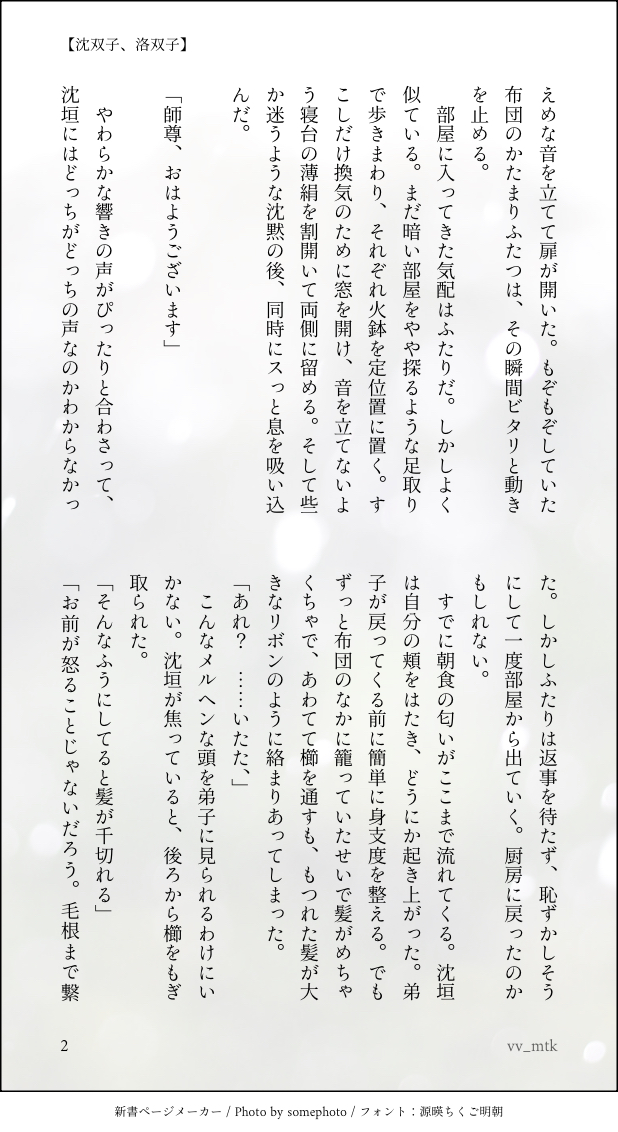 【沈双子、洛双子】
えめな音を立てて扉が開いた。もぞもぞしていた
布団のかたまりふたつは、その瞬間ピタリと動き
を止める。
部屋に入ってきた気配はふたりだ。しかしよく
似ている。まだ暗い部屋をやや探るような足取り
で歩きまわり、それぞれ火鉢を定位置に置く。す
こしだけ換気のために窓を開け、音を立てないよ
う寝台の薄絹を割開いて両側に留める。そして些
か迷うような沈黙の後、同時にスっと息を吸い込
んだ。
「師尊、おはようございます」
やわらかな響きの声がぴったりと合わさって、
沈垣にはどっちがどっちの声なのかわからなかっ
た。しかしふたりは返事を待たず、恥ずかしそう
にして一度部屋から出ていく。厨房に戻ったのか
もしれない。
すでに朝食の匂いがここまで流れてくる。沈垣
は自分の頬をはたき、どうにか起き上がった。弟
子が戻ってくる前に簡単に身支度を整える。でも
ずっと布団のなかに籠っていたせいで髪がめちゃ
くちゃで、あわてて櫛を通すも、もつれた髪が大
きなリボンのように絡まりあってしまった。
「あれ？　……いたた、」
こんなメルヘンな頭を弟子に見られるわけにい
かない。沈垣が焦っていると、後ろから櫛をもぎ
取られた。
「そんなふうにしてると髪が千切れる」
「お前が怒ることじゃないだろう。毛根まで繋
2
vv_mtk
新書ページメーカー / Photo by somephoto / フォント：源暎ちくご明朝